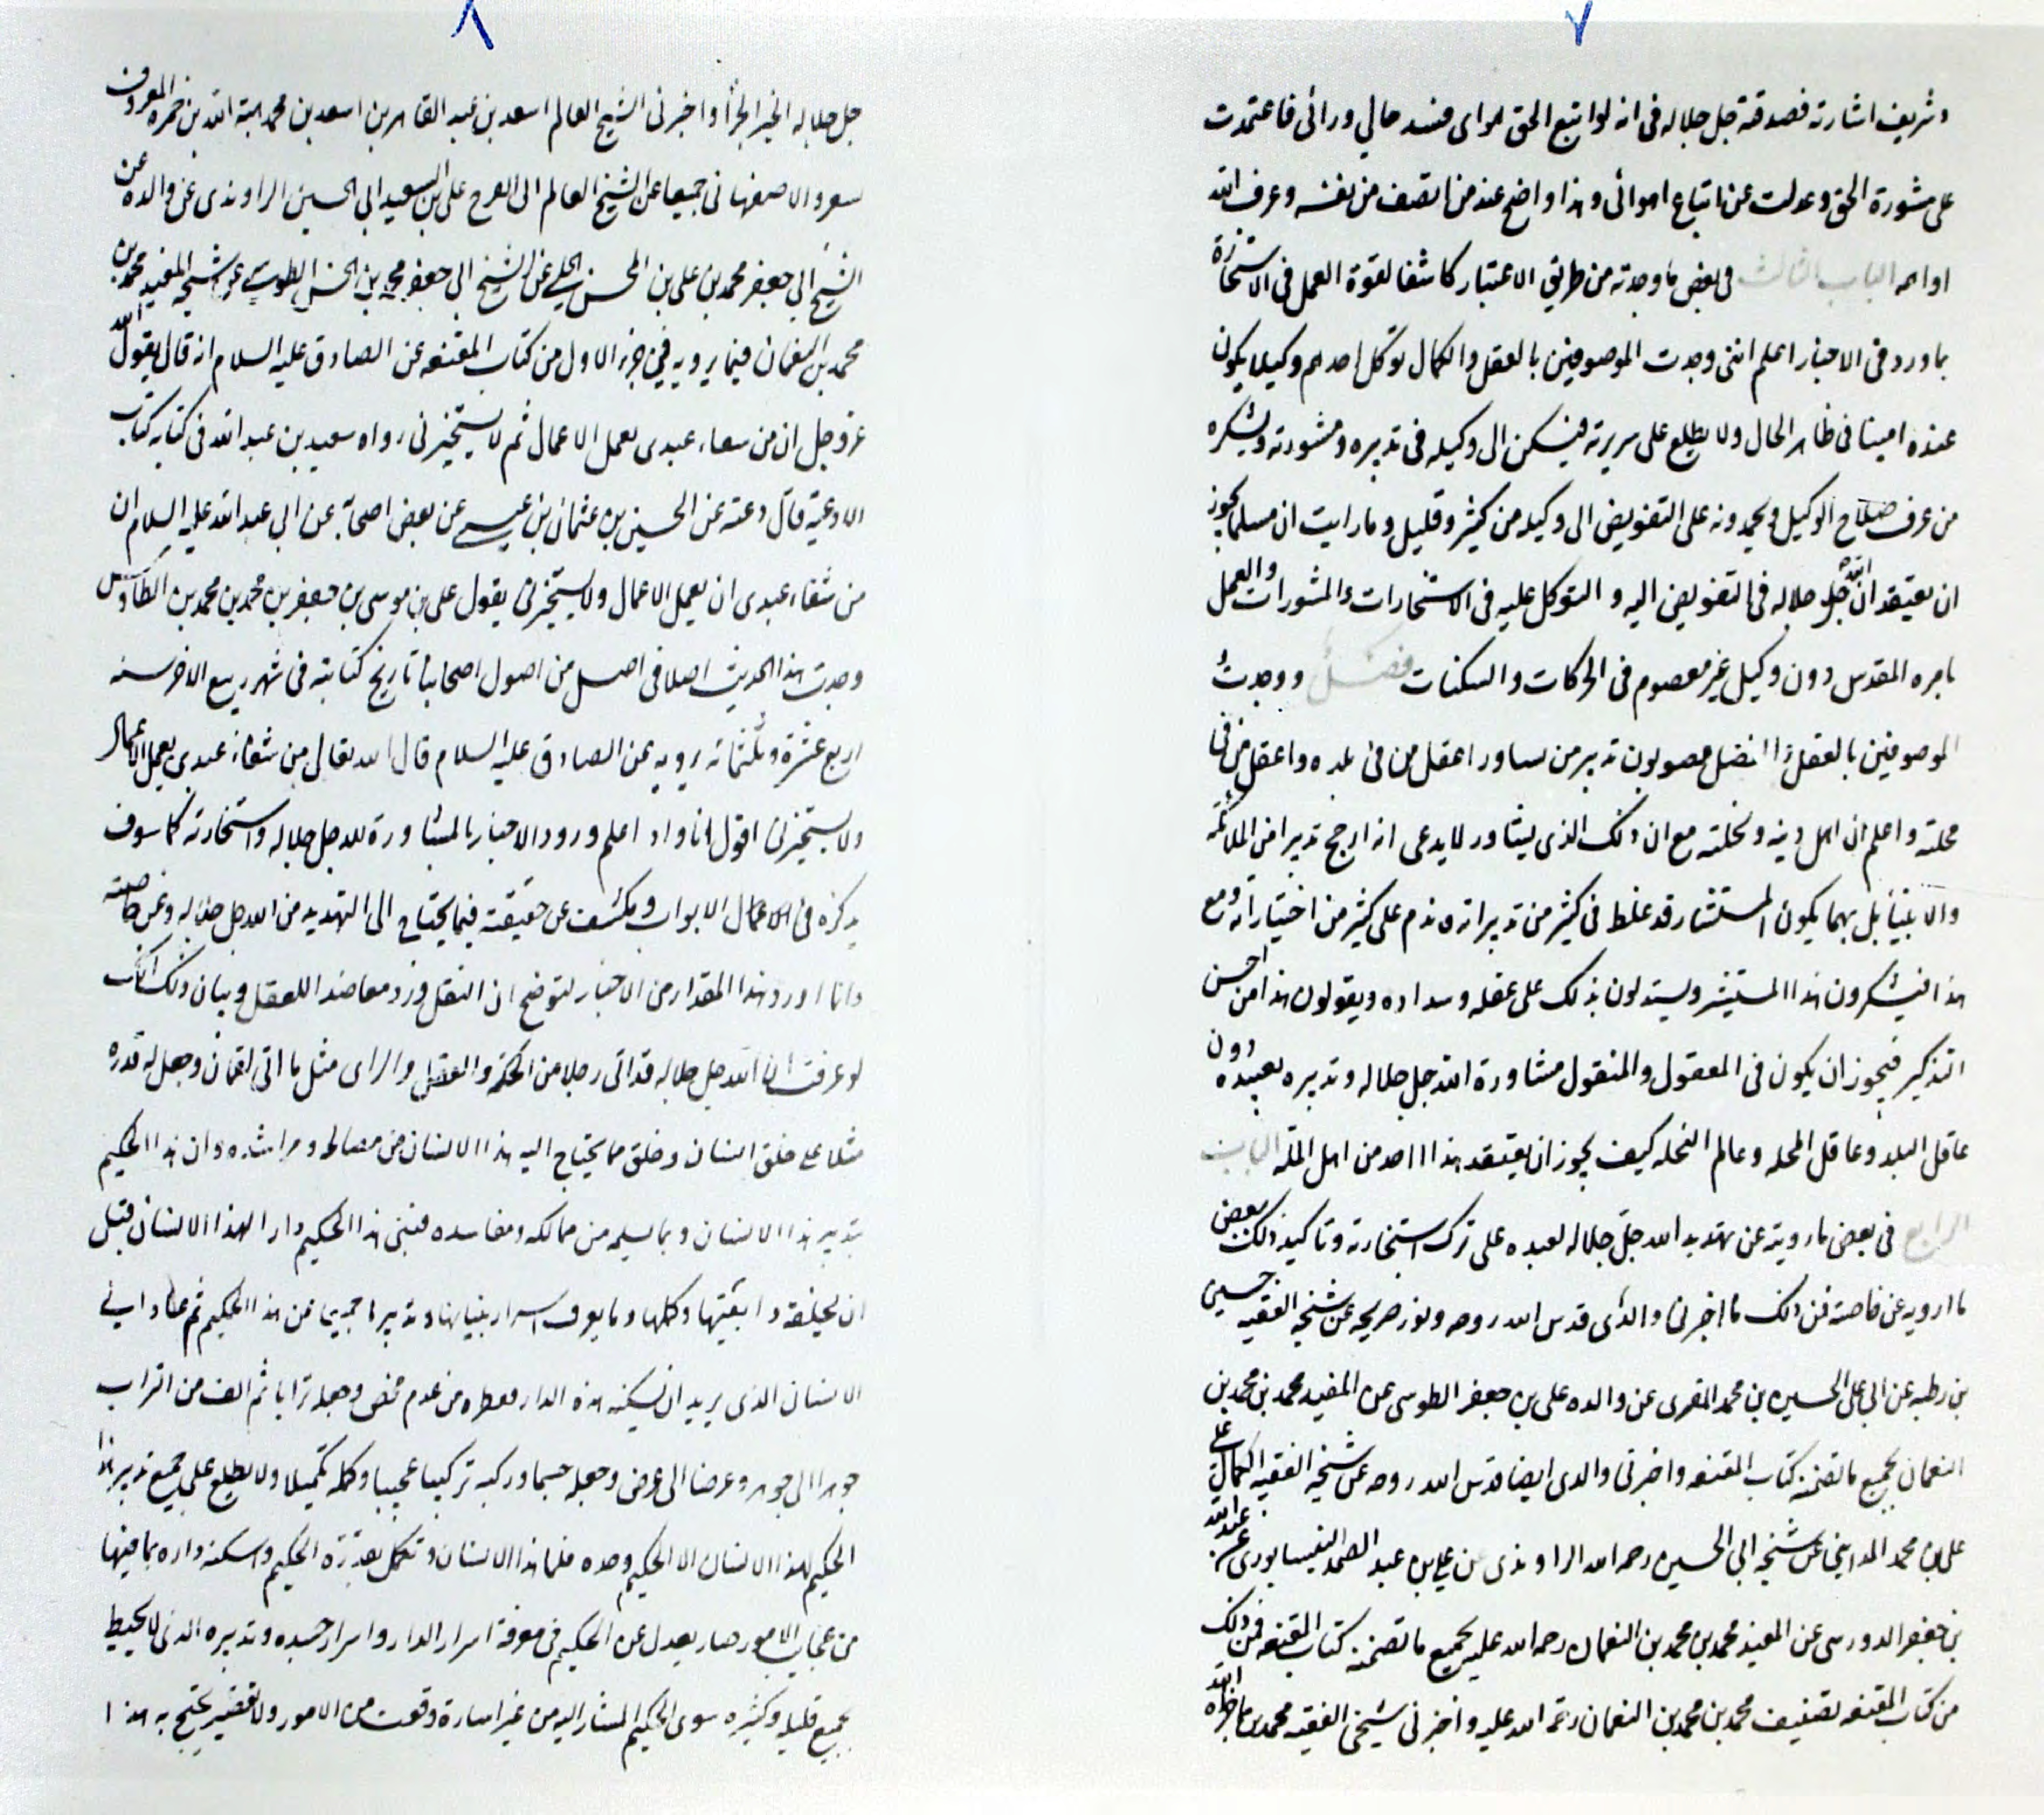 ٧
وشريف اشارته فصدقته جل جلاله في انه لو اتبع الحق اهوائي فسد حالي ورائي فاعتمدت
على مشورة الحق وعدلت عن اتباع اهوائي وهذا واضح عند من انصف من نفسه وعرف الله
اوامره الباب الثالث في بعض ما وجدته من طريق الاعتبار كاشفا لقوة العمل في الاستخارة
بما ورد في الاخبار اعلم انني وجدت الموصوفين بالعقل والكمال توكل احدهم وكيلا يكون
عنده امينا في ظاهر الحال ولا يطلع على سريرته فيسكن الى وكيله في تدبيره ومشورته ويشكره
من عرف صلاح الوكيل ويحمدونه على التفويض الى وكيله من كثير وقليل وما رايت ان مسلما يجوز
ان يعتقد ان الله جل جلاله في التفويض اليه والتوكل عليه في الاستخارات والمشورات والعمل
بامره المقدس دون وكيل غير معصوم في الحركات والسكنات فصل ووجدت
الموصوفين بالعقل والفضل يصوبون تدبير من يشاور اعقل من في بلده واعقل من في
محلته واعلم ان اهل دينه ونحلته مع ان ذلك الذي يشاور لا يدعي انه ارجح تدبيرا من الملائكة
والانبياء بل ربما يكون المستشار قد غلط في كثير من تدبيراته وندم على كثير من اختياراته ومع
هذا فيشكرون هذا المستشير ويستدلون بذلك على عقله وسداده ويقولون هذا من احسن
التذكير فيجوز ان يكون في المعقول والمنقول مشاورة الله جل جلاله وتدبيره لعبده دون
عاقل البلد وعاقل المحله وعالم النحله كيف يجوز ان يعتقد هذا احد من اهل الملة الباب
الرابع في بعض ما رويته عن تهديد الله جل جلاله لعبده على ترك استخارته وتاكيد ذلك ببعض
ما ارويه عن خاصته فمن ذلك ما اخبرني والدي قدس الله روحه ونور ضريحه عن شيخه الفقيه حسين
بن رطبه عن ابي على الحسين بن محمد المقري عن والده على بن جعفر الطوسي عن المفيد محمد بن محمد بن
النعمان بجميع ما تضمنه كتاب المقنعه واخبرني والدي ايضا قدس الله روحه عن شيخه الفقيه الكمال على
على بن محمد المدايني عن شيخه ابي الحسين رحمه الله الراوندي عن علي بن عبد الصمد النيسابوري عن عبد الله
بن جعفر الدوريسي عن المفيد محمد بن محمد بن النعمان رحمه الله عليه بجميع ما تضمنه كتاب المقنعه فمن ذلك
من كتاب المقنعه تصنيف محمد بن محمد بن النعمان رحمه الله عليه واخبرني شيخي الفقيه محمد بن نما جزاه الله
٨
جل جلاله الخير الجزاء واخبرني الشيخ العالم اسعد بن عبد القاهر بن اسعد بن محمد هبة الله بن حمزه المعروف
بسعرو الاصفهاني جميعا عن الشيخ العالم ابي الفرج على بن السعيد ابي الحسين الراوندي عن والده عن
الشيخ ابي جعفر محمد بن علي بن المحسن الحلي عن الشيخ ابي جعفر محمد بن الحسن الطوسي عن الشيخ المفيد محمد بن
محمد بن النعمان فيما يرويه في جزء الاول من كتاب المقنعه عن الصادق عليه السلام انه قال يقول الله
عز وجل ان من شقاء عبدي يعمل الاعمال ثم لا يستخيرني رواه سعيد بن عبد الله في كتابه كتاب
الادعية قال وعنه عن الحسين بن عثمان بن عيسى عن بعض اصحابه عن ابي عبد الله عليه السلام ان
من شقاء عبدي ان يعمل الاعمال ولا يستخيرني يقول على بن موسى بن جعفر بن محمد بن محمد بن الطاوس
وجدت هذا الحديث اصلا في اصل من اصول اصحابنا تاريخ كتابته في شهر ربيع الاخر سنه
اربع عشرة وثلثمائه يرويه عن الصادق عليه السلام قال الله تعالى من شقاء عبدي يعمل الاعمال
ولا يستخيرني اقول انا واد اعلم ورود الاخبار بالمشاورة لله جل جلاله واستخارته كما سوف
يذكره في الاعمال الابواب ويكشف عن حقيقته فيما يحتاج الى التهديد من الله جل جلاله وعن خاصته
وانما اورد هذا المقدار من الاخبار لتوضح ان النقل ورد معاضدا للعقل وبيان ذلك انك
لو عرفت ان الله جل جلاله قد اتى رجلا من الحكمة والعقل والراي مثل ما اتى لقمان وجعل له قدرة
مثلا على خلق انسان وخلق ما يحتاج اليه هذا الانسان من مصالحه ومراشده وان هذا الحكيم
بتدبير هذا الانسان وبما يسلمه من مهالكه ومفاسده فبنى هذا الحكيم دارا لهذا الانسان قبل
ان يخلقه واتقنها وكملها وما يعرف اسرار بنيانها وتدبيرها جميعا غير هذا الحكيم ثم عاد الى
الانسان الذي يريد ان يسكنه هذه الدار فقطره من عدم محض وجعله ترابا ثم الف من التراب
جوهرا الى جوهر وعرضا الى عرض وجعله جسما وركبه تركيبا عجيبا وكمله تكميلا ولا يطلع على جميع تدبير هذا
الحكيم لهذا الانسان الا الحكيم وحده فلما هذا الانسان وتكمل بقدرة الحكيم واسكنه داره بما فيها
من عجائب الامور صار يعدل عن الحكيم في معرفة اسرار الدار واسرار جسده وتدبيره الذي لا يحيط
بجميع قليله وكثيره سوى الحكيم المشار اليه من غير اساءة وقعت من الامور ولا تقصير يحتج به هذا